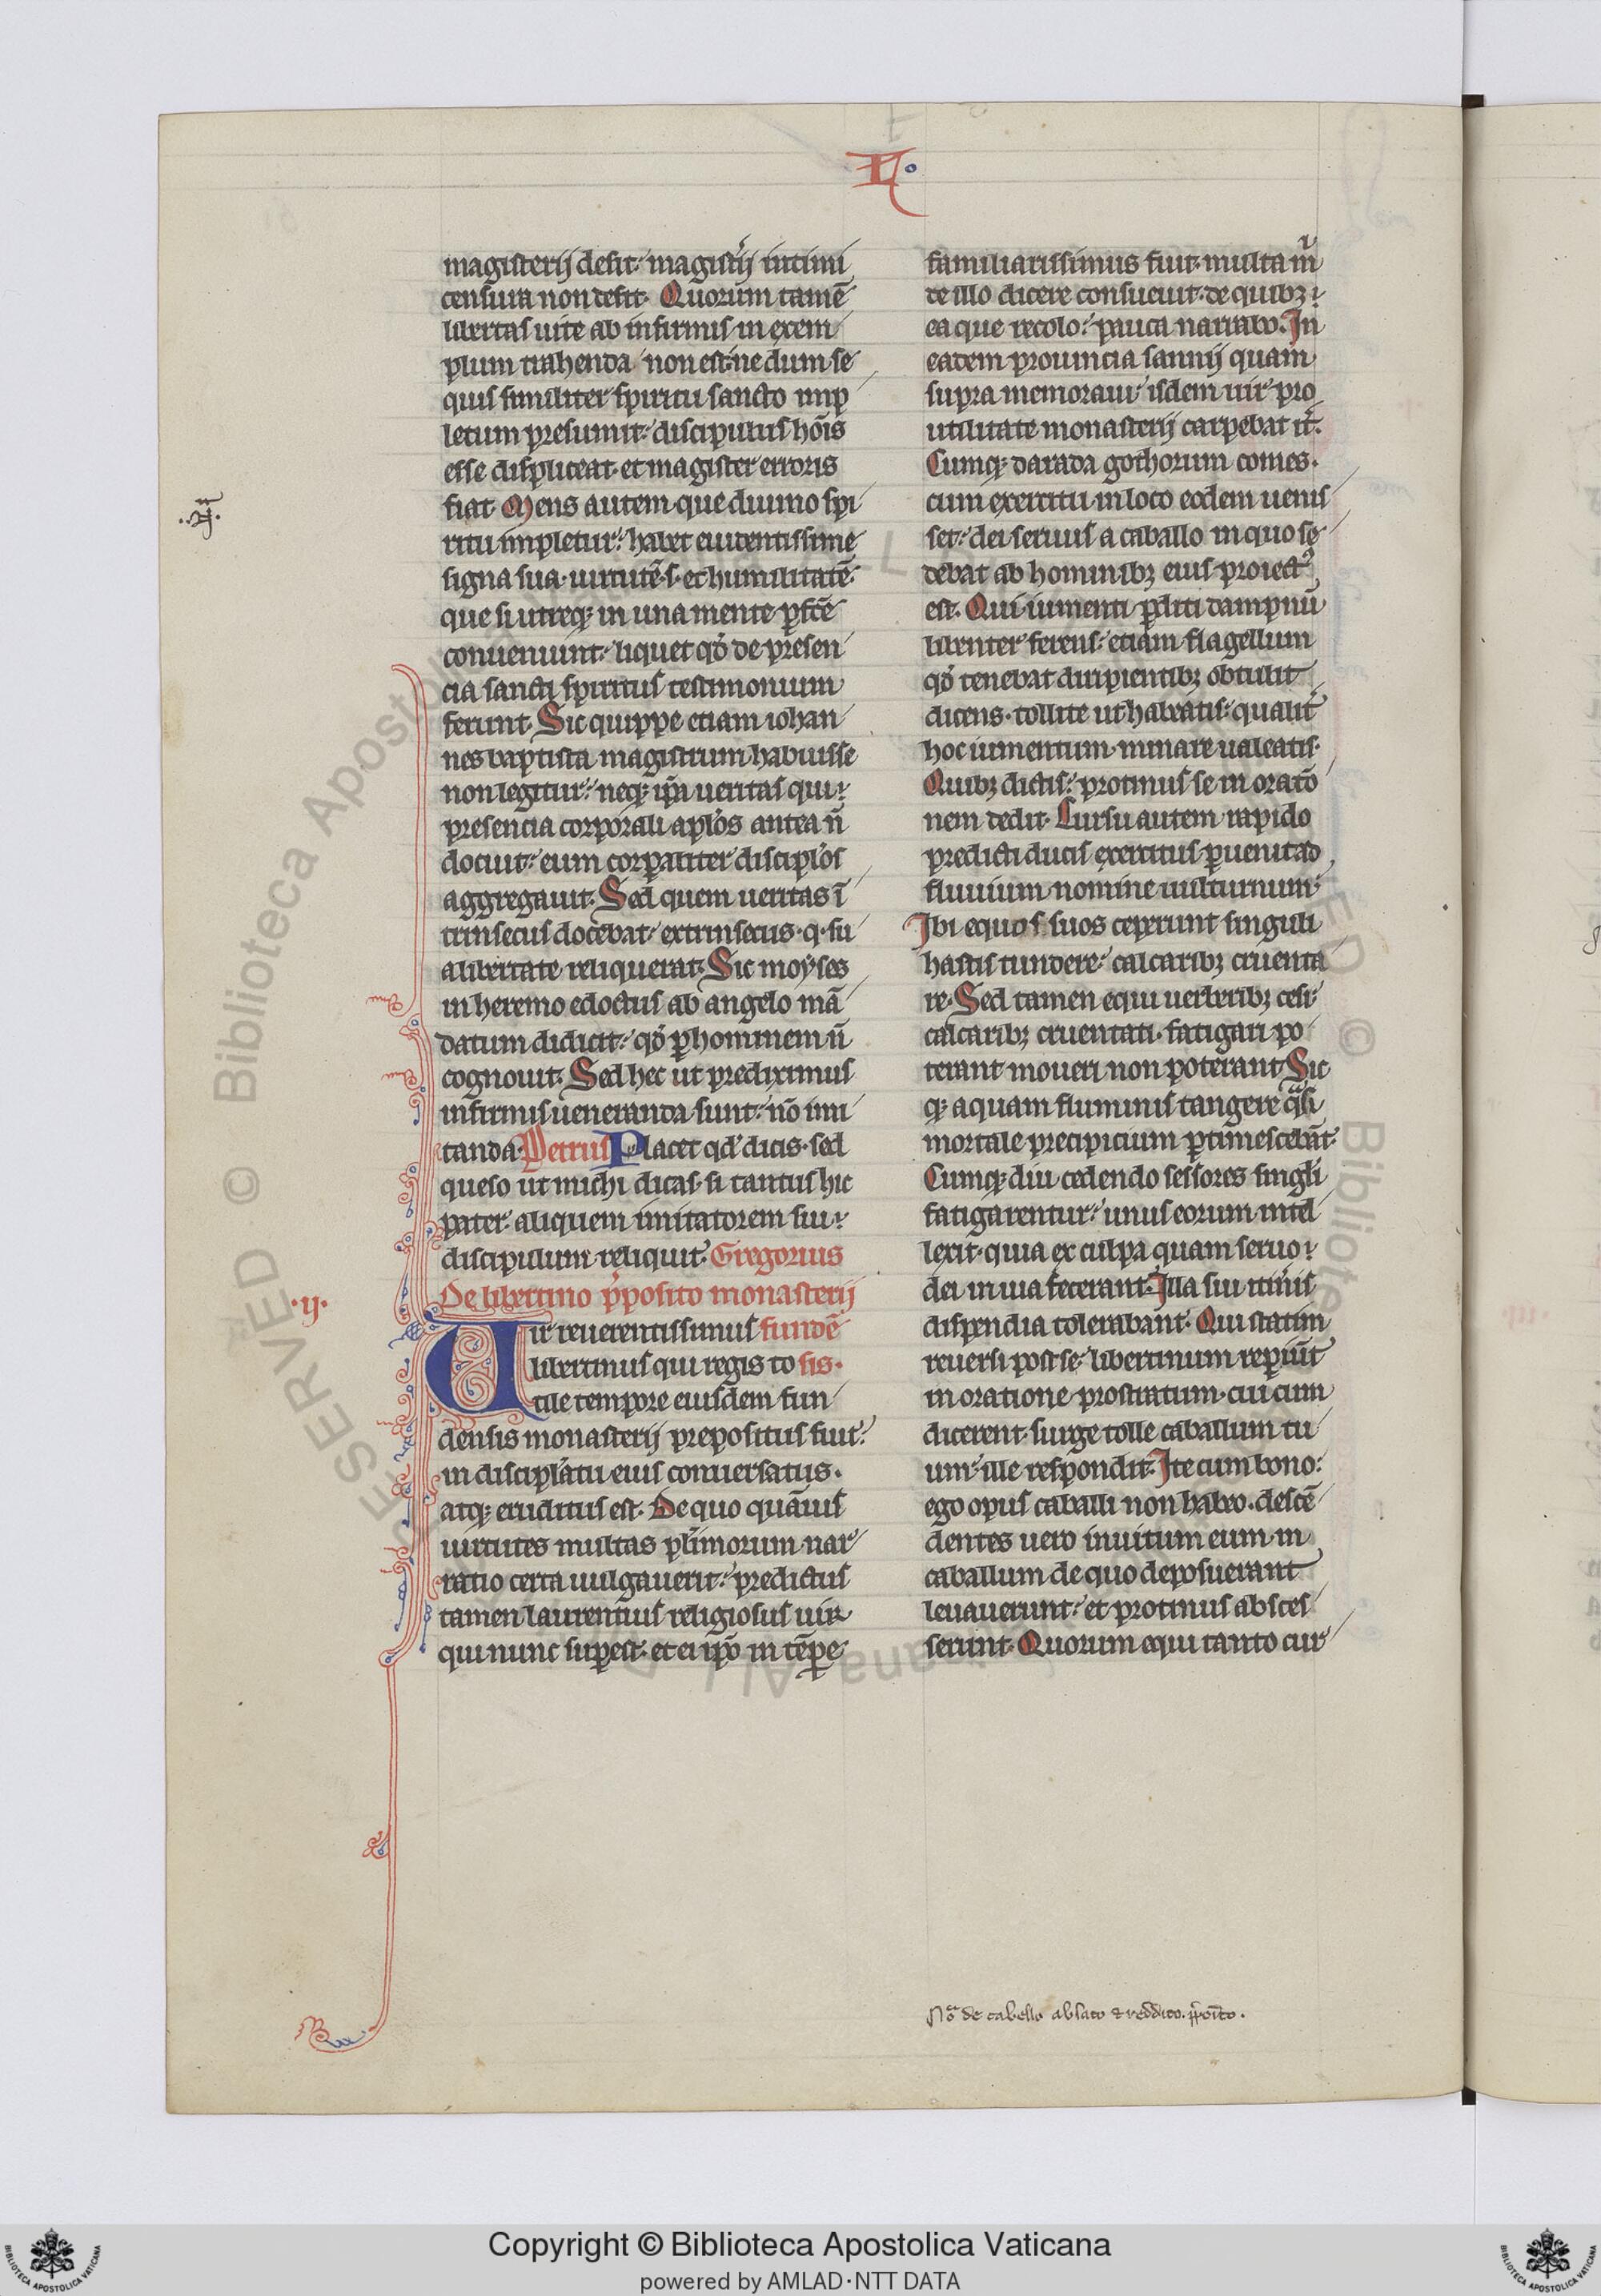 L.
magisterij desit. magistˢij intimi
censura non desit. Quorum tamē
libertas uite ab infirmis in exem
plum trahenda non est. ne dum se
quis similiter spiritu sancto imp
letum presumit. discipulus hōis
esse dispiciat et magister erroris
fiat. Mens autem que diuino spi
ritu impletur. habet euidentissime
signa sua. uirtutē. s. et humilitatē.
que si utreqꝫ in una mente ꝑfcē
conueniunt. liquet qđ de presen
cia sancti spiritus testimonium
ferunt. Sic quippe etiam iohan
nes baptista magistrum habuisse
non legitur. neqꝫ ip̄a ueritas qui
presencia corporali apl'os antea n̄
docuit. eum corꝑaliter discipl'os
aggregauit. Sed quem ueritas ī
trinsecus docebat. extrinsecus. q. su
a libertate reliquerat. Sic moyses
in heremo edoctus ab angelo mā
datum didicit. qđ ꝑ hominem n̄
cognouit. Sed hec ut prediximus
infirmis ueneranda sunt. nō imi
tanda. Petrus Placet qđ dicis. sed
queso ut michi dicas. si tantus hic
pater. aliquem imitatorem sui
discipulum reliquit. Gregorius
De libertino p̄posito monasterij
.ij.
Vir reuerentissimus fundē
libertinus qui regis to sis.
tile tempore eiusdem fun
densis monasterij prepositus fuit.
in discipl'atu eius conuersatus.
atqꝫ eruditus est. De quo quāuis
uirtutes multas pl'imorum nar
ratio certa uulgauerit. predictus
tamen laurentius religiosus uir
qui nunc suꝑest. et ei ip̄o in tēꝑe
familiarissimus fuit. multa m̄
de illo dicere consueuit. de quibꝫ
ea que recolo. pauca narrabo. In
eadem prouincia sannij quam
supra memoraui. isdem uir pro
utilitate monasterij carpebat it̄.
Cumqꝫ darada gothorum comes.
cum exercitu in loco eodem uenis
set. dei seruus a caballo in quo se
debat ab hominibꝫ eius proiectꝰ
est. Qui iumenti ꝑditi dampnū
libenter ferens. etiam flagellum
qđ tenebat diripientibꝫ obtulit
dicens. tollite ut habeatis. qualit̄
hoc iumentum minare ualeatis.
Quibꝫ dictis. protinus se in oratō
nem dedit. Cursu autem rapido
predicti ducis exercitus ꝑuenit ad
fluuium nomine uulturnum.
Ibi equos suos ceperunt singuli
hastis tundere. calcaribꝫ cruenta
re. Sed tamen equi uerberibꝫ cesi.
calcaribꝫ cruentati. fatigari po
terant moueri non poterant. Sic
qꝫ aquam fluminis tangere qᵃsi
mortale precipicium ꝑtimescebāt.
Cumqꝫ diu cedendo sessores singl'i
fatigarentur. unus eorum intel
lexit. quia ex culpa quam seruo
dei in uia fecerant. Illa sui itin̄is
dispendia tolerabant. Qui statim
reuersi post se. libertinum repiūt
in oratione prostratum. cui cum
dicerent. surge tolle caballum tu
um. ille respondit. Ite cum bono.
ego opus caballi non habeo. descē
dentes uero inuitum eum in
caballum de quo deposuerant
leuauerunt. et protinus absces
serunt. Quorum equi tanto cur
Noᵃ de cabello ablato ⁊ reddito. p̄poīto.
Copyright © Biblioteca Apostolica Vaticana
powered by AMLAD·NTT DATA